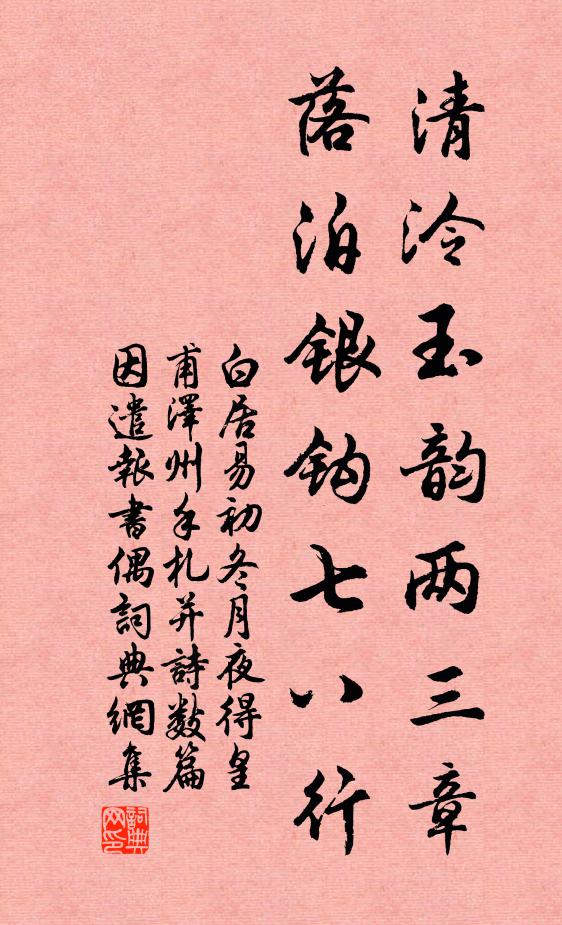 清泠玉韵两三章
落泊银钩七八行
白居易初冬月夜得皇
甫澤州手札并詩数篇
因遣報書偶詞典網集
詞典网印